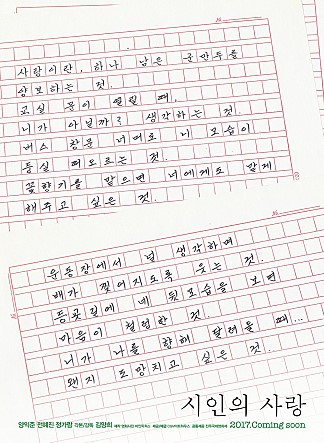 사랑이란, 하나 남은 군만두를
양보하는 것.
교실 문이 열릴 때,
니가 아닐까? 생각하는 것.
버스 창문 너머로 니 모습이
둥실 떠오르는 것.
꽃향기를 맡으면 너에게도 맡게
해주고 싶은 것.
운동장에서 널 생각하며
배가 찢어지도록 웃는 것.
등굣길에 네 뒷모습을 보면
마음이 철렁한 것.
니가 나를 향해 달려올 때...
왠지 도망치고 싶은 것.
시인의 사랑
양익준 전혜진 정가람 각본/감독 김양희
2017.Coming soon